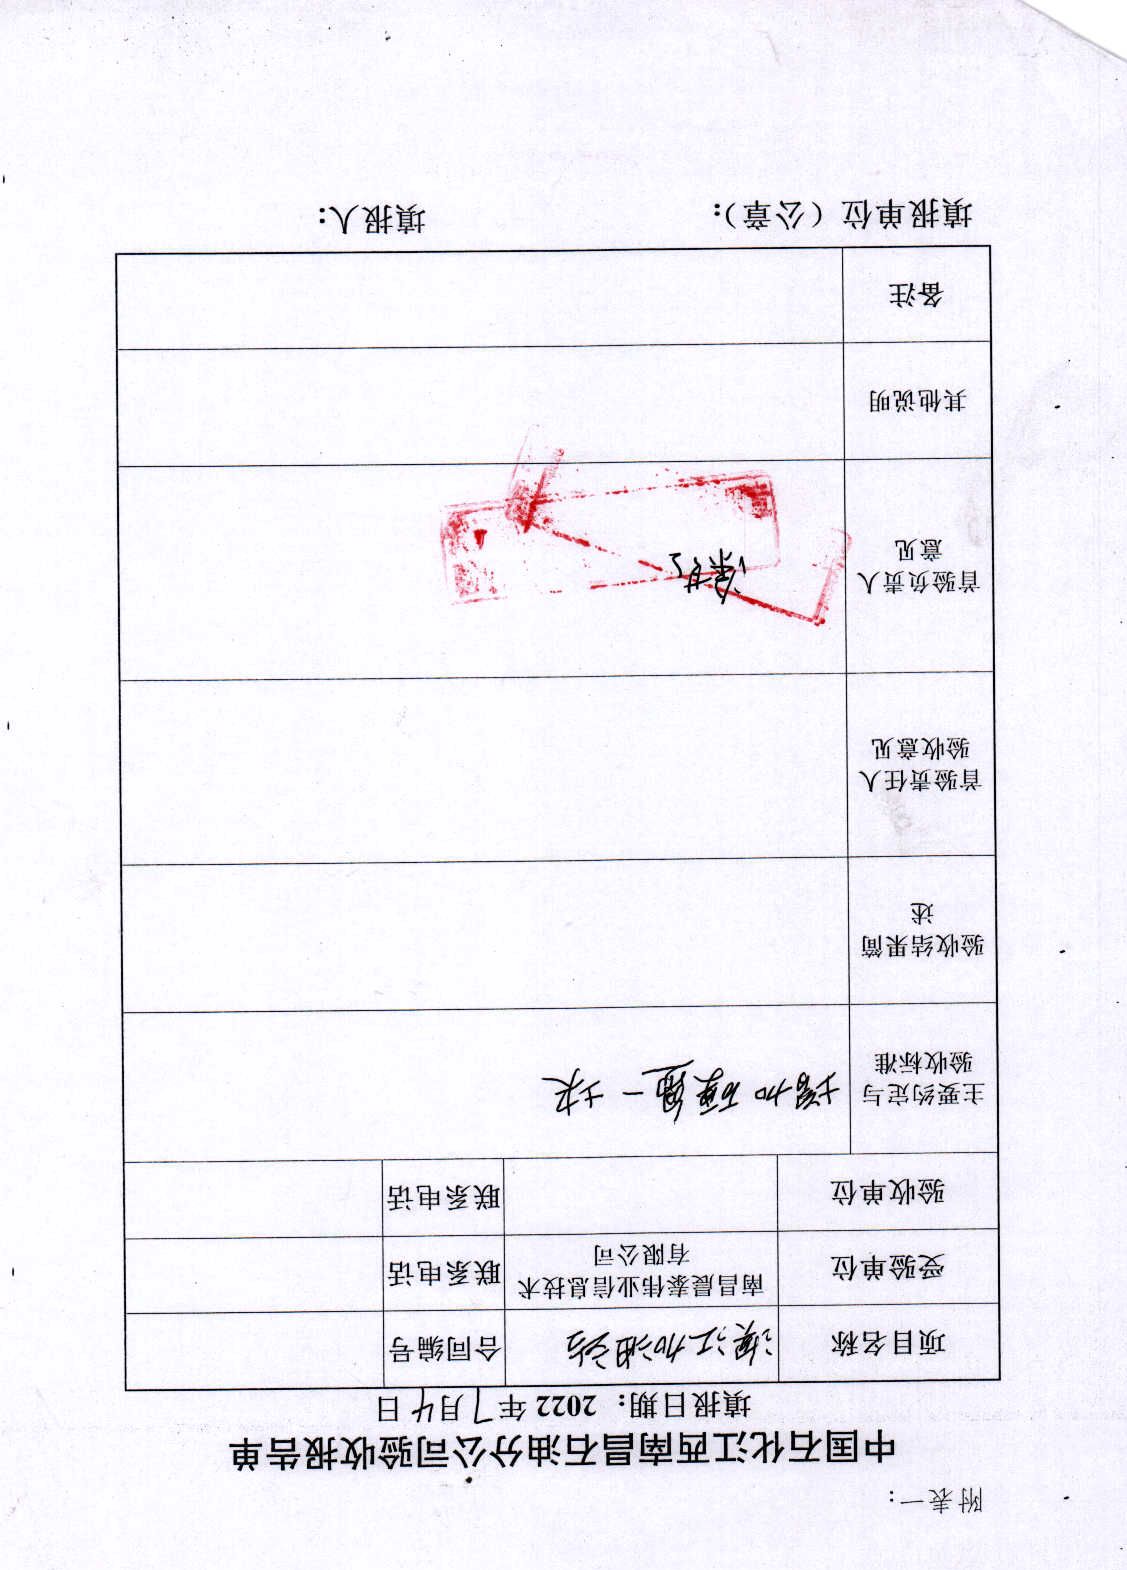 附表一：
中国石化江西南昌石油分公司验收报告单
填报日期： 2022 年 7 月 4 日
项目名称 溪江加油站 合同编号
受验单位 南昌晨泰伟业信息技术有限公司 联系电话
验收单位 联系电话
主要约定与验收标准 增加硬盘一块
验收结果简述
首验责任人验收意见
首验负责人意见
其他说明
备注
填报单位（公章）： 填报人：